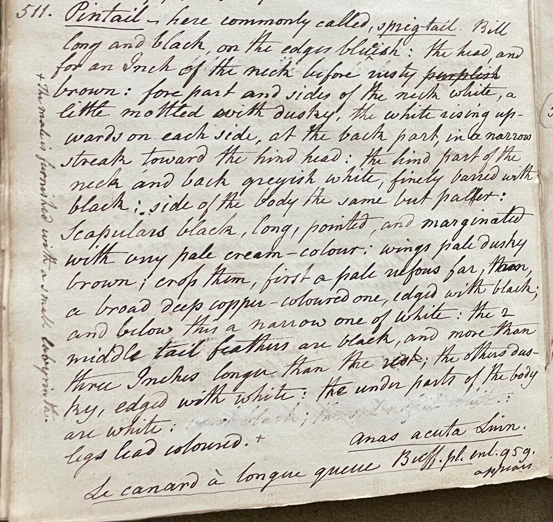 511. Pintail – here commonly called, sprig-tail. Bill
long and black, on the edges bluish: the head, and
for an Inch of the neck before rusty purplish
brown: fore part and sides of the neck white, a
little mottled with dusky, the white rising up-
wards on each side, at the back part, in a narrow
streak toward the hind head: the hind part of the
neck and back greyish white, finely varied with
black; side of the body the same but paller:
Scapulars black, long, pointed and marginated
with very pale cream-colour; wings pale dusky
brown; cross them, first a pale rufous far, then,
a broad deep copper-coloured one, edged with black;
and below this a narrow one of white: the 2
middle tail feathers are black, and more than
three Inches longer than the rest; the others dus-
ky, edged with white: the under parts of the body
are white:
legs lead coloured. +
Anas acuta Linn.
Le canard à longue queue Buff. pl. enl. 959.
+ The male is furnished with a small labyrinth.